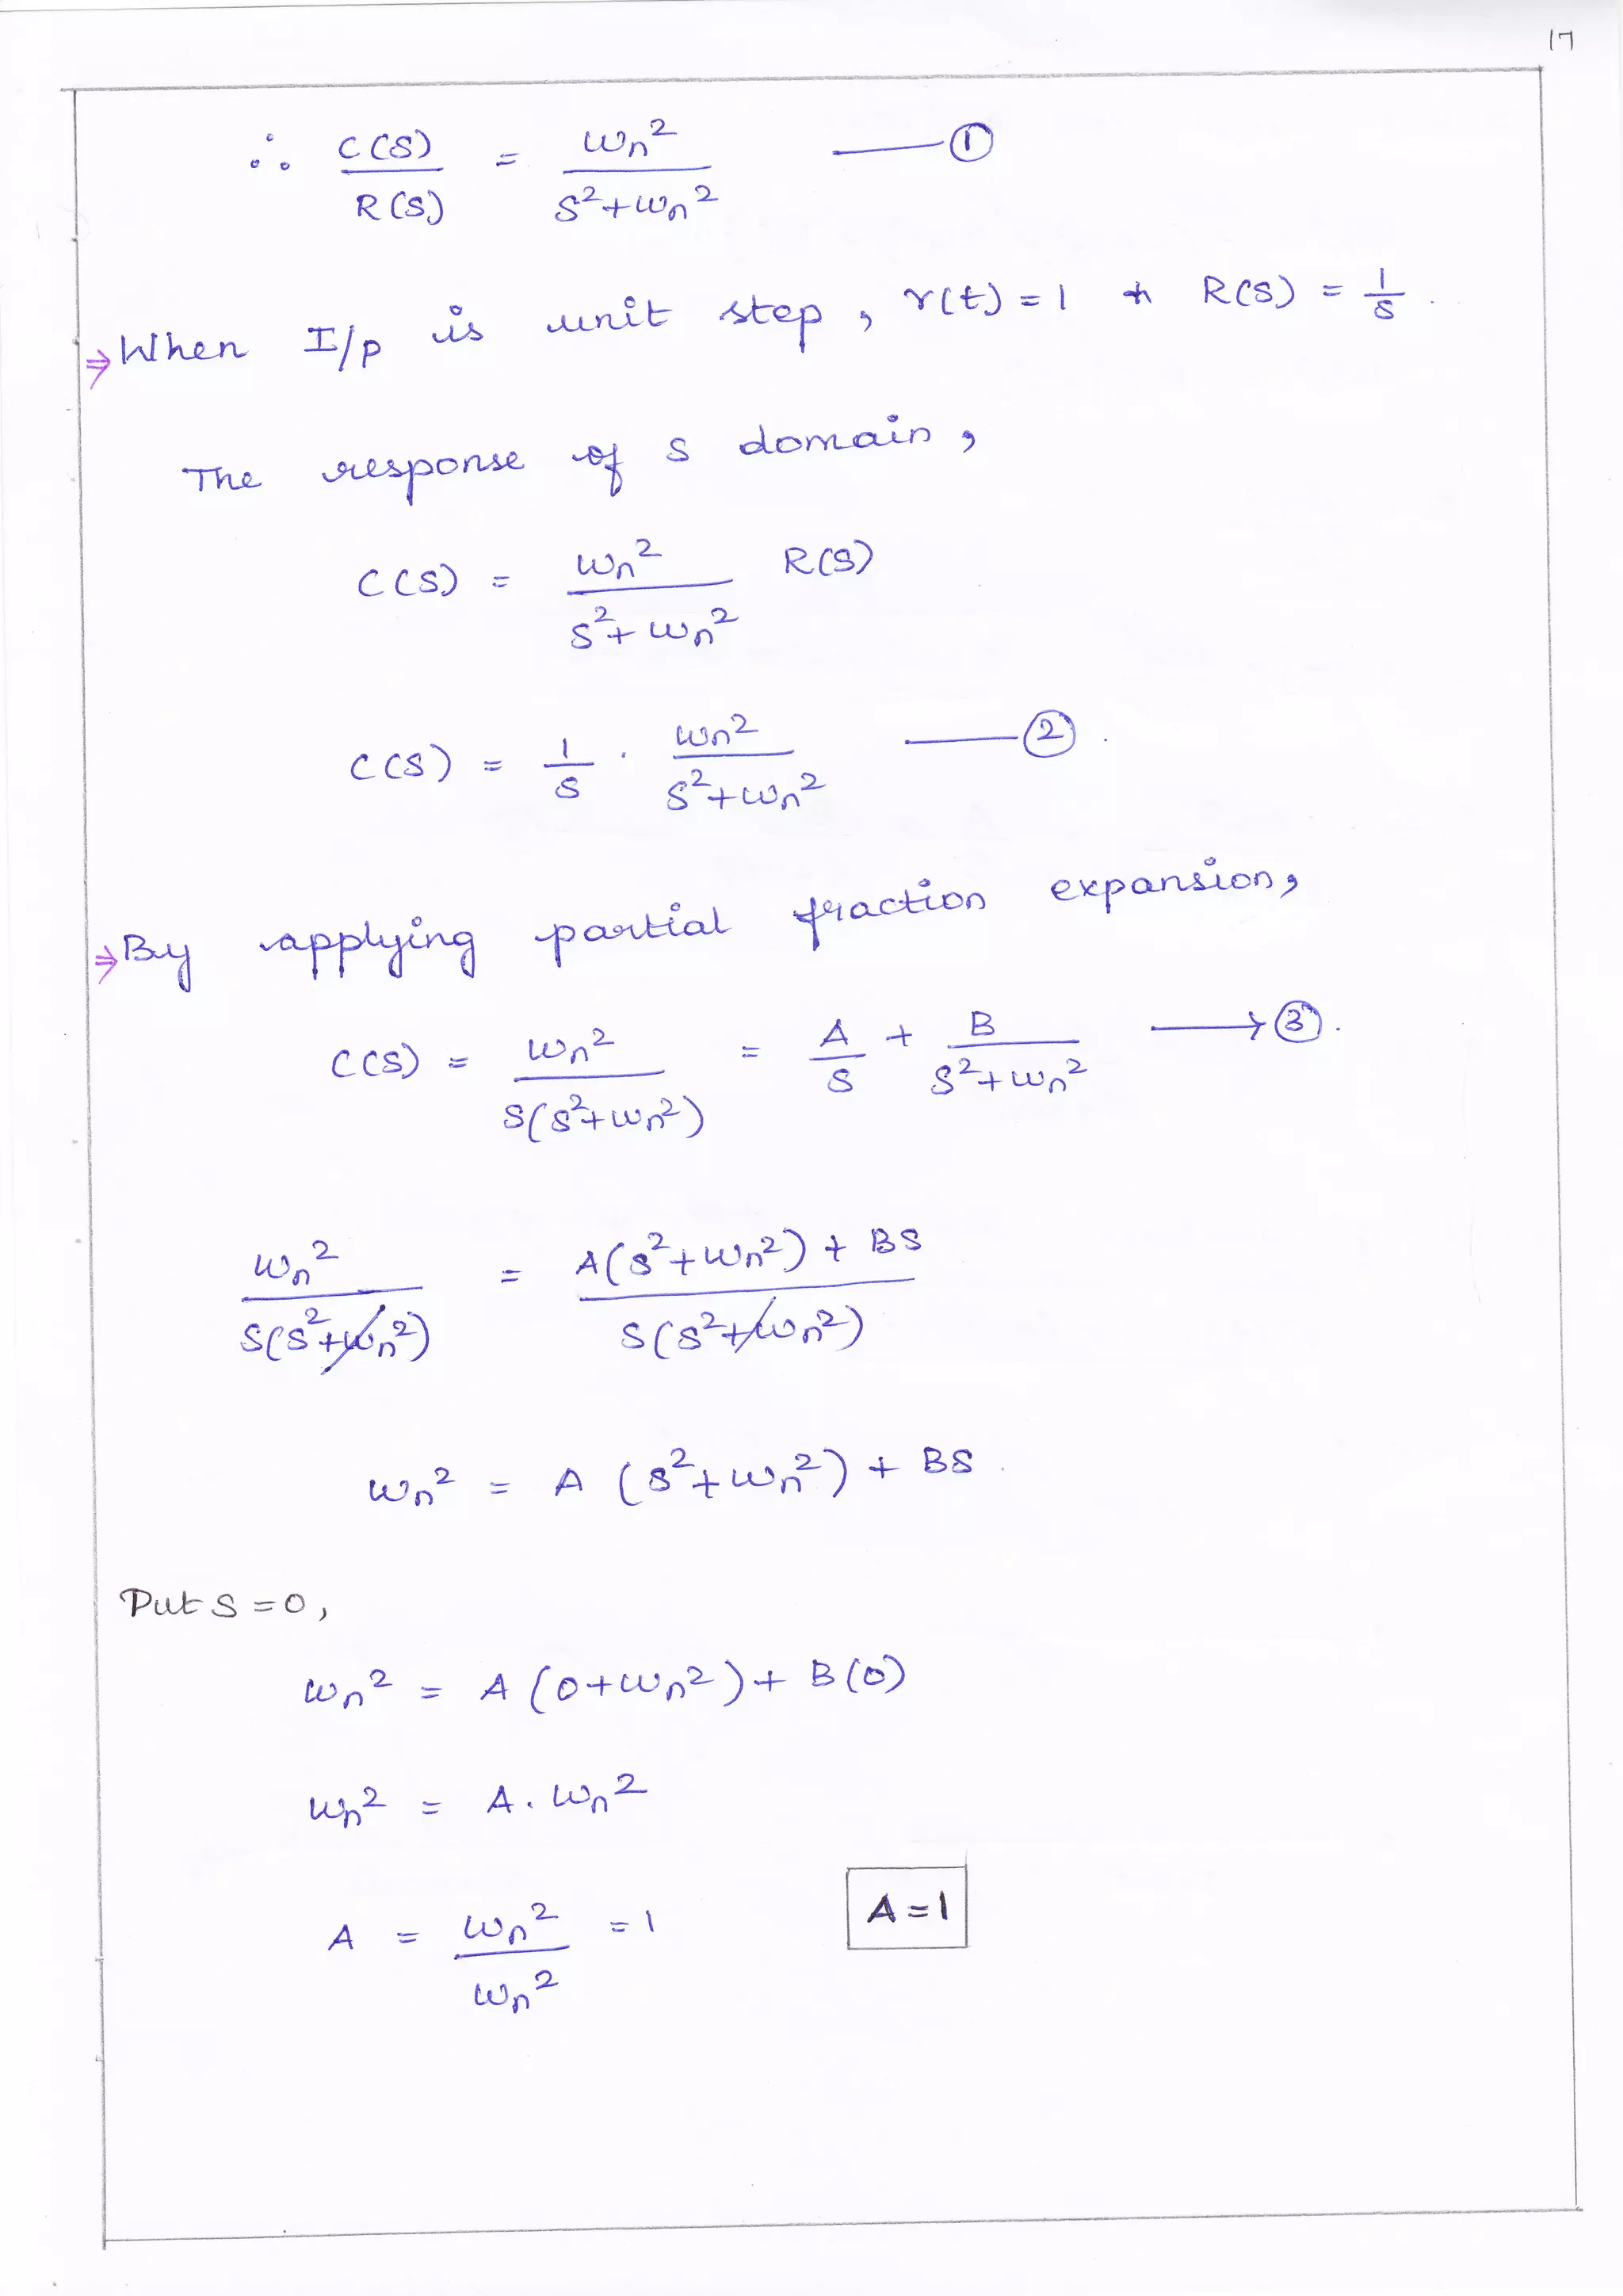 17
∴ C(S)/R(S) = ωn²/(S²+ωn²) —— ①
⇒ When I/p is unit step, r(t) = 1 & R(S) = 1/S.
The response of S domain,
C(S) = ωn²/(S²+ωn²) R(S)
C(S) = 1/S · ωn²/(S²+ωn²) —— ②.
⇒ By applying partial fraction expansion,
C(S) = ωn²/(S(S²+ωn²)) = A/S + B/(S²+ωn²) ⟶ ③.
ωn²/(S(S²+ωn²)) = (A(S²+ωn²) + BS)/(S(S²+ωn²))
ωn² = A (S²+ωn²) + BS.
Put S = 0,
ωn² = A (0+ωn²) + B(0)
ωn² = A · ωn²
A = ωn²/ωn² = 1
A = 1